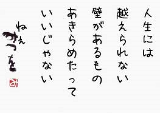 人生には
越えられない
壁があるもの
あきらめたって
いいじゃない
ねえ
みつを